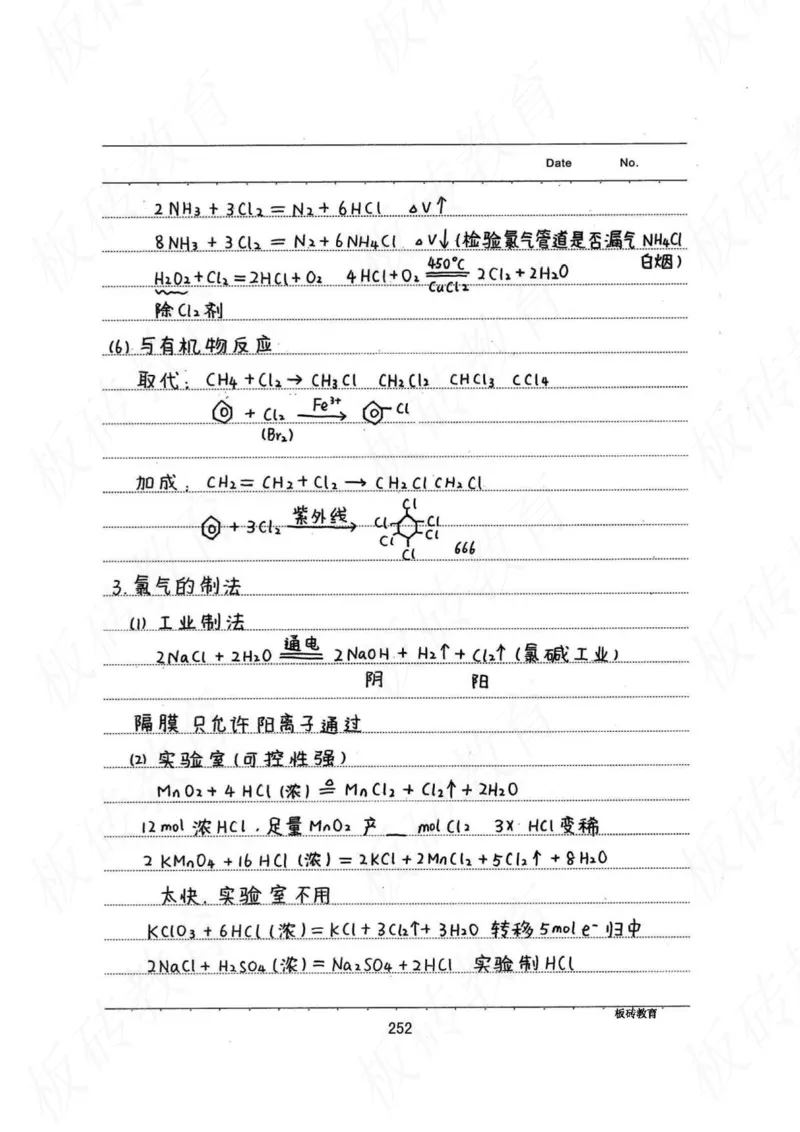 Date No.
2NH3 + 3Cl2 = N2 + 6HCl △V↑
8NH3 + 3Cl2 = N2 + 6NH4Cl △V↓(检验氯气管道是否漏气 NH4Cl
白烟)
H2O2 + Cl2 = 2HCl + O2 4HCl + O2 450°C CuCl2 2Cl2 + 2H2O
除Cl2剂
(6) 与有机物反应
取代: CH4 + Cl2 → CH3Cl CH2Cl2 CHCl3 CCl4
+ Cl2 Fe3+ → Cl
(Br2)
加成: CH2=CH2 + Cl2 → CH2ClCH2Cl
+ 3Cl2 紫外线 → Cl Cl Cl Cl Cl Cl 666
3. 氯气的制法
(1) 工业制法
2NaCl + 2H2O 通电 2NaOH + H2↑ + Cl2↑ (氯碱工业)
阴 阳
隔膜 只允许阳离子通过
(2) 实验室(可控性强)
MnO2 + 4HCl(浓) △= MnCl2 + Cl2↑ + 2H2O
12mol 浓HCl. 足量MnO2 产 __ mol Cl2 3X HCl变稀
2KMnO4 + 16HCl(浓) = 2KCl + 2MnCl2 + 5Cl2↑ + 8H2O
太快. 实验室不用
KClO3 + 6HCl(浓) = KCl + 3Cl2↑ + 3H2O 转移5mol e- 归中
2NaCl + H2SO4(浓) = Na2SO4 + 2HCl 实验制HCl
板砖教育
252